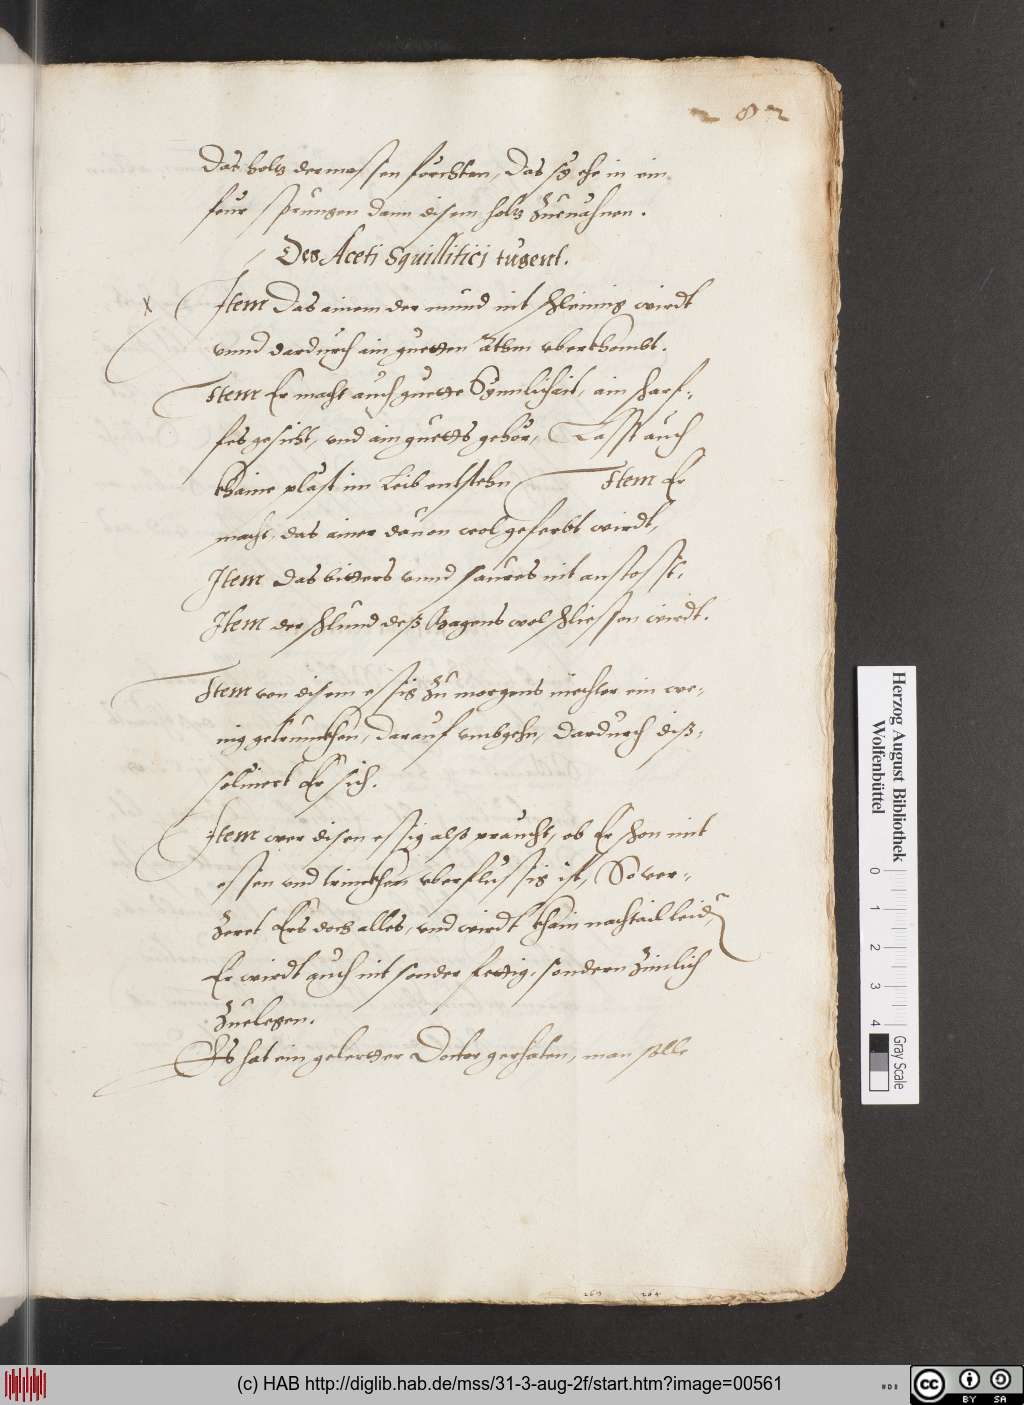 282
Das holtz dermassen förchten, Das sy ehe in ein
feur sprungen dann disem holtz zuenahnen.
Des Aceti Squillitici tugent.
Item Das ainem der mund nit schleimig wirdt
vnnd dardurch ain guetten Athm vberkhombt.
Item Er macht auch guette Synnlichait, ain scharf-
fes gesicht, vnd ain guetts gehör, Lasst auch
khaine plast im Leib entstehn, Item Er
macht, das ainer dauon wol geferbt wirdt,
Item das bitters vnnd saures nit anstosst.
Item der schlund deß Magens wol schliessen wirdt.
Item von disem essig zu morgens niechter ein we-
nig getrunckhen, darauf vmbgehn, Dardurch diß-
soluiert Er sich.
Item wer disen essig alß praucht, ob Er schon mit
essen vnd trinckhen vberflüssig ist, So ver-
zeret Ers doch alles, vnd wirdt khain nachtail leiden,
Er wirdt auch nit sonder fettig, sondern zimlich
zuelegen.
Es hat ein gelerter Doctor gerhaten, man solle
263 264
Herzog August Bibliothek
Wolfenbüttel
0 1 2 3 4
Gray Scale
(c) HAB http://diglib.hab.de/mss/31-3-aug-2f/start.htm?image=00561
cc BY SA